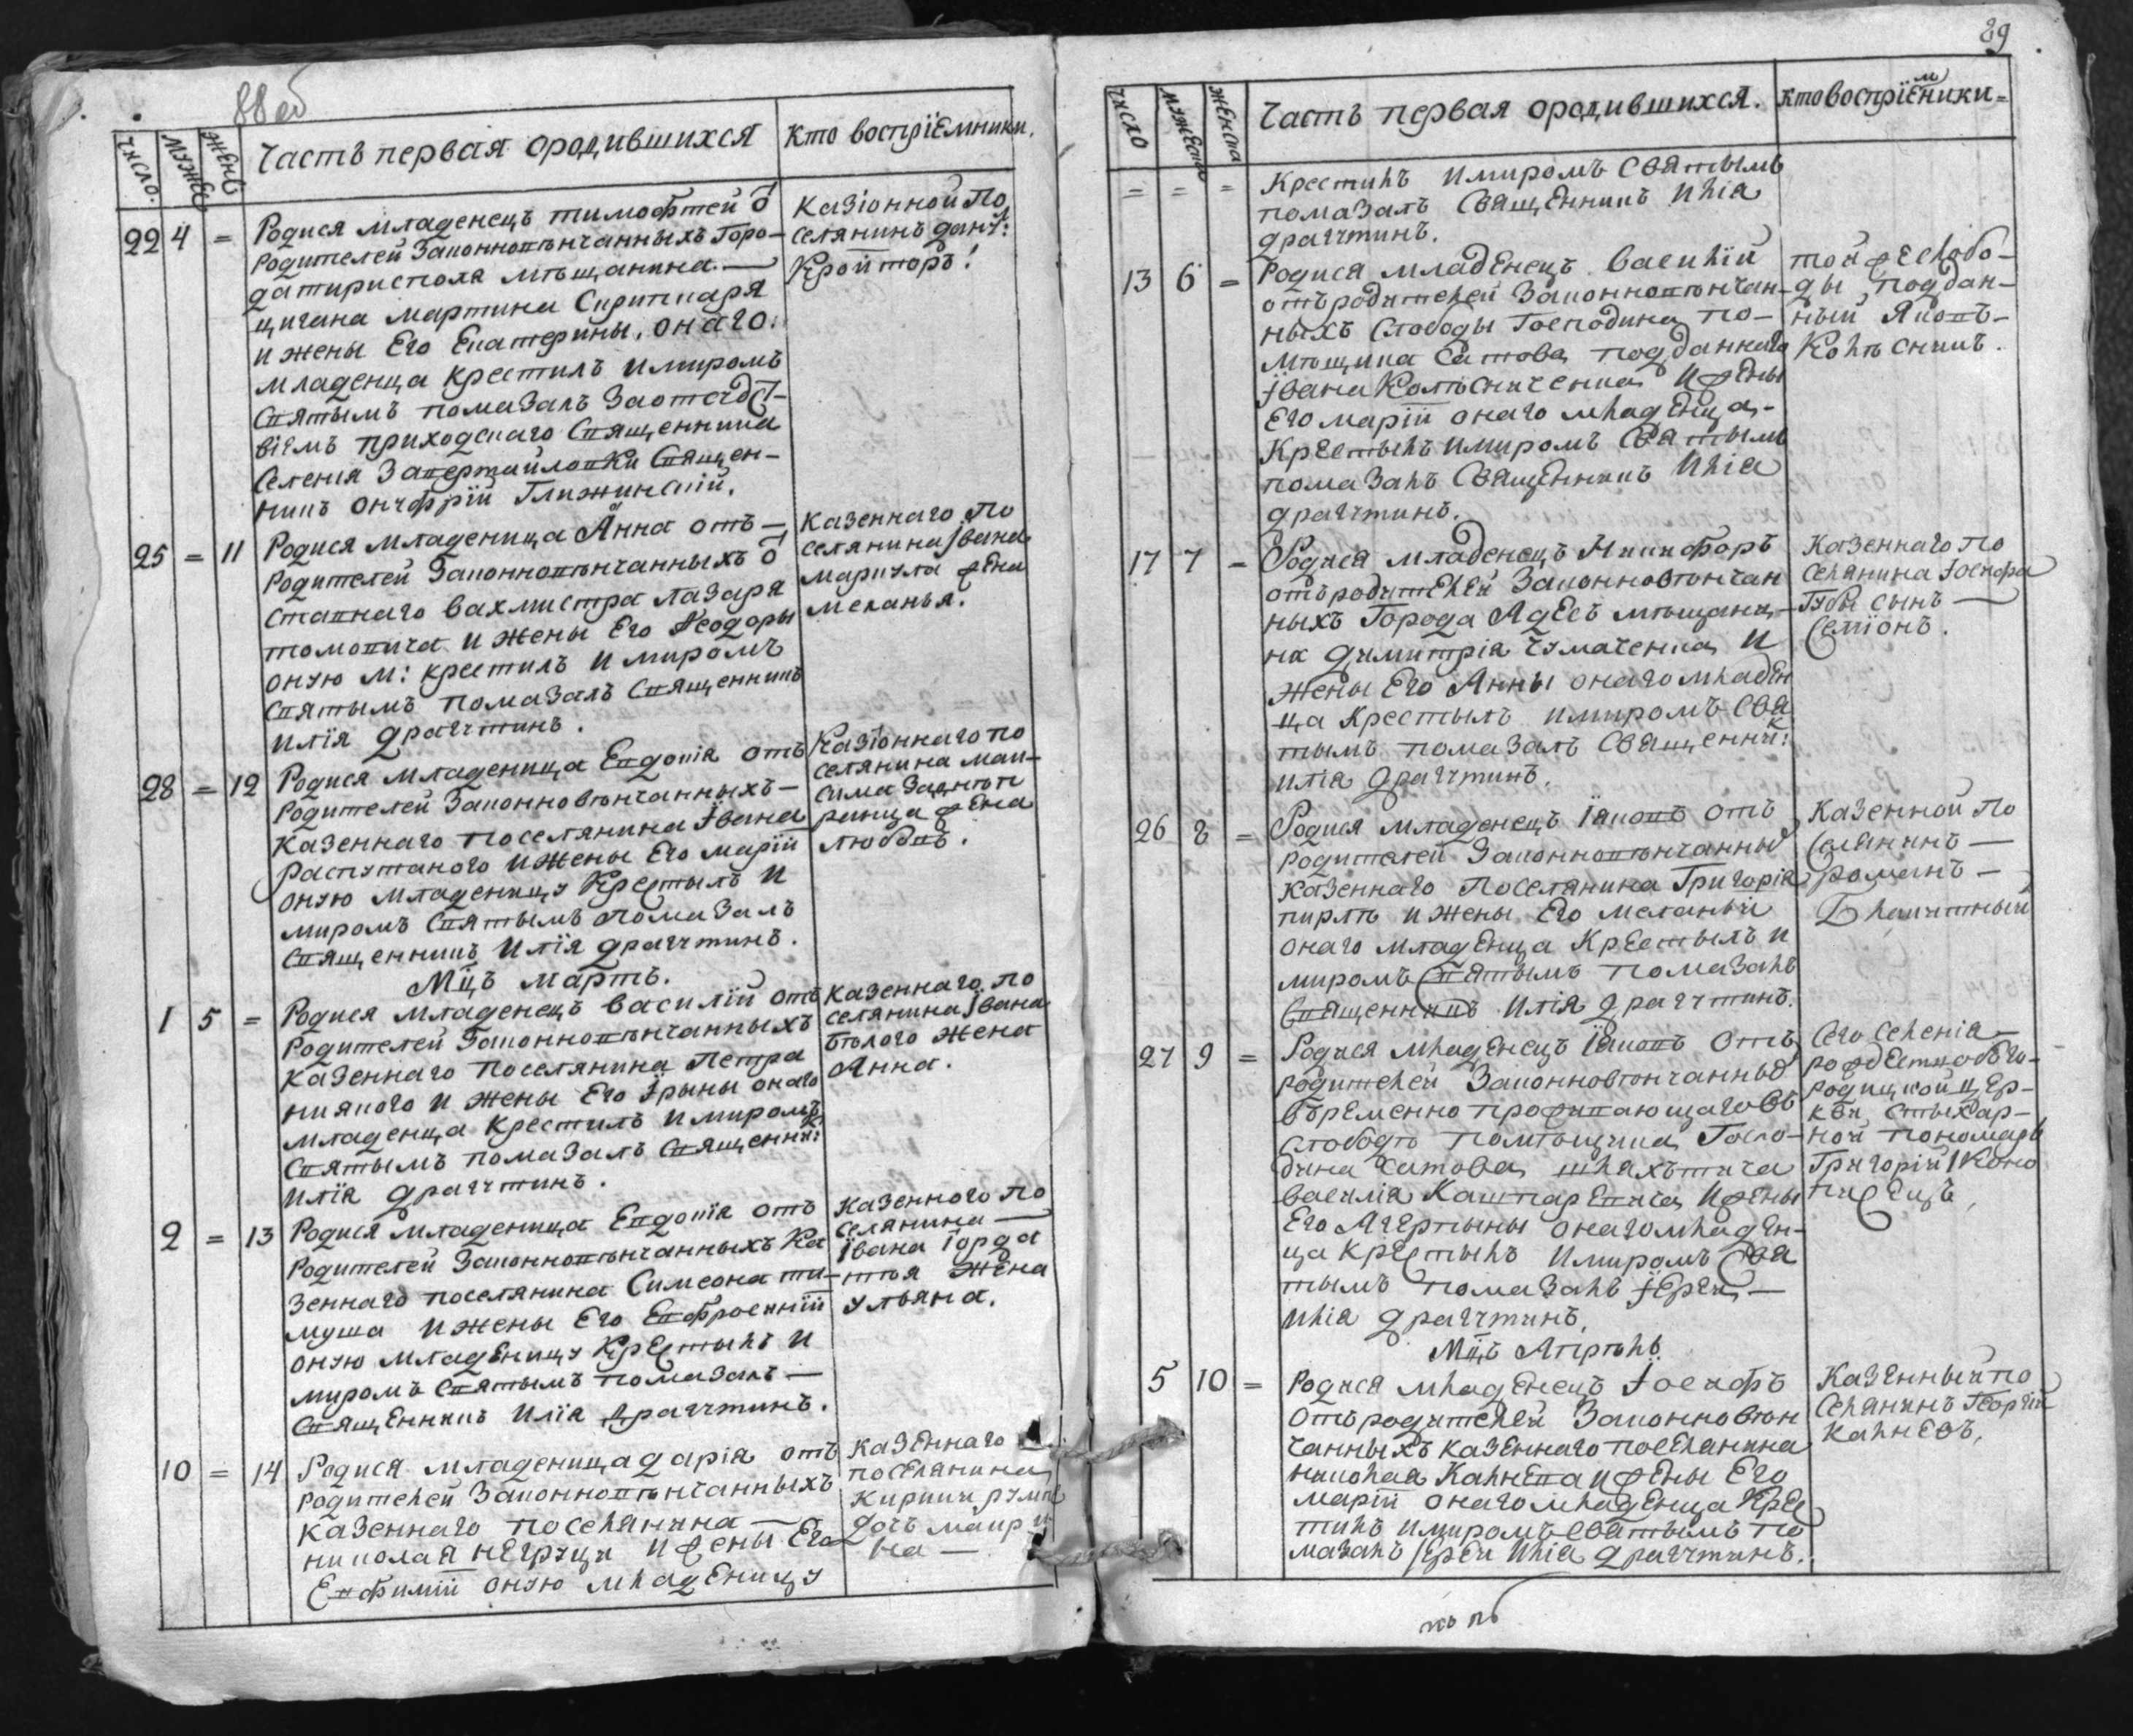 88 об
число.
мужес
женс
Часть первая ородившихся
Кто воспрїемники.
22 4 = Родися младенецъ тимофтей ѿ
родителей Законновѣнчанныхъ Горо-
датирисполя мѣщанина —
цигана мартина
и жены Его Екатерины, онаго:
младенца крестилъ имиромъ
Святымъ помазалъ
приходскаго Священника
Селенія Священ-
никъ онуфрїй
Казіонной По
селянинъ
Кройторъ:
25 = 11 Родися младеница Анна отъ —
Родителей Законновѣнчанныхъ ѿ
ставнаго вахмистра лазаря
томовича и жены Его Ѳеодоры
оную м: крестилъ и миромъ
Святымъ помазалъ Священникъ
илїя драгутинъ.
Казеннаго По
селянина Івана
маригула жена
меланья.
28 = 12 Родися младеница Евдокїя отъ
Родителей Законновѣнчанныхъ —
Казеннаго поселянина Ївана
распутаного и жены Его марїй
оную младеницу Крестылъ и
миромъ Святымъ помазалъ
Священникъ Илїя драгутинъ.
Казіоннаго по
селянина мак-
сима
жена
любовъ.
Мцъ мартъ.
1 5 = Родися младенецъ василїй отъ
Родителей Законновѣнчанныхъ
казеннаго поселянина Петра
и жены Его Ірыны онаго
младенца Крестилъ и миромъ
Святымъ помазалъ Священни:к
Илїя драгутинъ.
Казеннаго по
селянина Івана
бѣлого жена
Анна.
2 = 13 Родися младеница Евдокїя отъ
Родителей Законновѣнчанныхъ Ка
зеннаго поселянина Симеона ти-
муша и жены Его Евфросинїй
оную младеницу Крестылъ и
миромъ Святымъ помазалъ —
Священникъ Илїя драгутинъ.
Казенного по
селянина —
Івана Іорда
жена
ульяна.
10 = 14 Родися младеница дарїя отъ
родителей Законновѣнчанныхъ
казеннаго поселянина —
николая негруци и жены Его
Евфимїй оную младеницу
казеннаго
поселянина
дочь маири
на —
89
число
мужеска
женска
Часть первая ородившихся.
Кто воспрїемники=
= = = Крестилъ имиромъ Святымъ
помазалъ Священникъ Илїа
драгутинъ.
13 6 = Родися младенецъ василїй
отъ родителей Законновѣнчан-
ныхъ Слободы Господина по-
мѣщика Сатова подданнаго
Івана Колѣсниченка и жены
Его марїй онаго младенца-
Крестылъ имиромъ Святымъ
помазалъ Священникъ Илїа
драгутинъ.
той же слобо-
ды поддан-
ный Яковъ-
Колѣсникъ.
17 7 = Родися младенецъ Никифоръ
отъ родителей Законновѣнчан
ныхъ Города Адесъ мѣщани-
на димитрїа чумаченка и
жены Его Анны онаго младен
ца Крестылъ имиромъ Свя
тымъ помазалъ Священни:к
илїа драгутинъ.
Казеннаго по
селянина Іосифа
Губы сынъ —
Семїонъ.
26 8 = Родися младенецъ Їаковъ отъ
родителей Законновѣнчанныхъ
казеннаго Поселянина Григорїа
и жены Его меланьи
онаго младенца Крестылъ и
миромъ Святымъ помазалъ
Священникъ Илїя драгутинъ.
Казенной по
Селянинъ —
романъ —
27 9 = Родися младенецъ Їаковъ отъ
родителей Законновѣнчанныхъ
вьременно проживающаго въ
Слободѣ помѣщика Госпо-
дина Сатова шляхътича
василїя и жены
Его онаго младен-
ца Крестылъ имиромъ Свя
тымъ помазалъ Їереи —
Илїа драгутинъ,
Сего Селенїа —
рождестцобъго-
родицкой цер-
кви стыхар-
ной пономарь
Григорїй Коно
Мцъ Апрѣлъ
5 10 = Родися младенецъ Іосифъ
Отъ родителей Законновѣн
чанныхъ казеннаго поселянина
николая Калнева и жены Его
марїй онаго младенца Кре
тилъ имиромъ Святымъ по
мазалъ Іереи Илїа драгутинъ.
Казенный по
Селянинъ Георгїй
Калневъ,